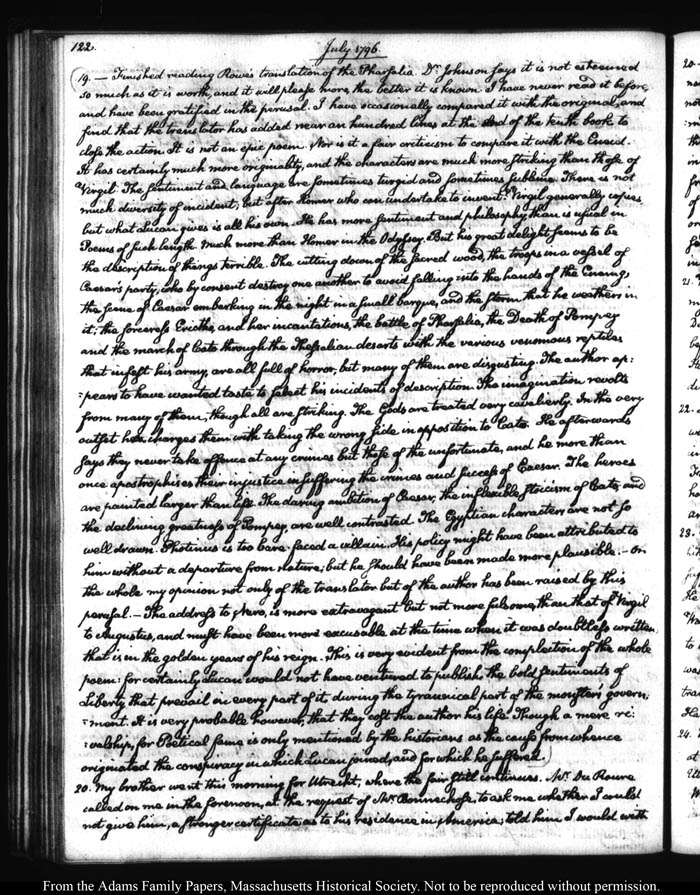 122.
July 1796.
19. — Finished reading Rowe's translation of the Pharsalia. Dr. Johnson says it is not esteemed
so much as it is worth, and it will please more the better it is known. I have never read it before,
and have been gratified in the perusal. I have occasionally compared it with the original, and
find that the translator has added near an hundred lines at the end of the tenth book to
close the action. It is not an epic poem. Nor is it a fair criticism to compare it with the Eneid.
It has certainly much more originality, and the characters are much more striking than those of
Virgil. The sentiment and language are sometimes turgid and sometimes sublime. There is not
much diversity of incident; but after Homer who can undertake to invent? Virgil generally copies,
but what Lucan gives is all his own. He has more sentiment and philosophy, than is usual in
Poems of such length. Much more than Homer in the Odyssey. But his great delight seems to be
the description of things terrible. The cutting down of the sacred wood, the troops in a vessel of
Caesar's party, who by consent destroy one another to avoid falling into the hands of the Enemy,
the scene of Caesar embarking in the night in a small barque, and the storm that he weathers in
it; the sorceress Ericthe, and her incantations, the battle of Pharsalia, the Death of Pompey
and the march of Cato through the Thessalian desarts with the various venomous reptiles
that infest his army, are all full of horror, but many of them are disgusting. The author ap:
:pears to have wanted taste to select his incidents of description. The imagination revolts
from many of them, though all are striking. The Gods are treated very cavalierly. In the very
outset he charges them with taking the wrong side in opposition to Cato. He afterwards
says they never take offence at any crimes but those of the unfortunate, and he more than
once apostrophises their injustice in suffering the crimes and success of Caesar. The heroes
are painted larger than life. The daring ambition of Caesar, the inflexible stoicism of Cato, and
the declining greatness of Pompey, are well contrasted. The Egyptian characters are not so
well drawn. Photinus is too bare-faced a villain. His policy might have been attributed to
him without a departure from Nature; but he should have been made more plausible. — On
the whole my opinion not only of the translator but of the author has been raised by this
perusal. — The address to Nero, is more extravagant but not more fulsome, than that of Virgil
to Augustus, and must have been more excusable at the time when it was doubtless written,
that is in the golden years of his reign. This is very evident from the complection of the whole
poem: for certainly Lucan would not have ventured to publish the bold sentiments of
Liberty that prevail in every part of it, during the tyrannical part of the monster's govern:
:ment. It is very probable however, that they cost the author his life. Though a mere ri:
:valship, for Poetical fame is only mentioned by the historians as the cause from whence
originated the conspiracy in which Lucan joined, and for which he suffered.
20. My brother went this morning for Utrecht, where the fair still continues. Mr. Du Roure
called on me in the forenoon, at the request of Mr. Bonnechose, to ask me whether I would
not give him, a stronger certificate as to his residence in America; told him I would with
From the Adams Family Papers, Massachusetts Historical Society. Not to be reproduced without permission.